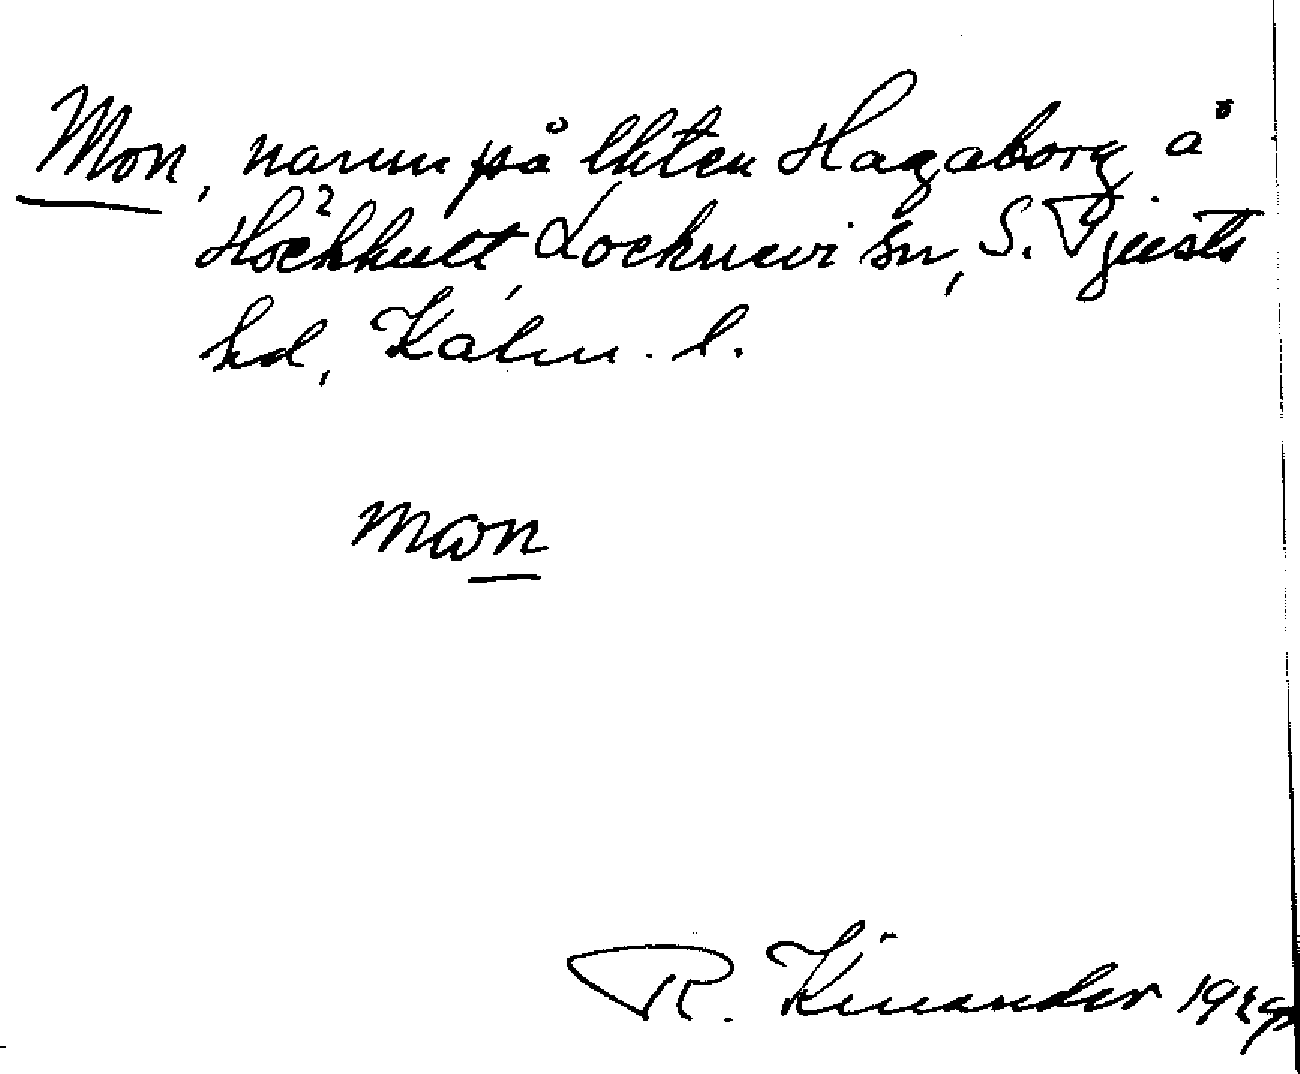 Mon, namn på lhten Hagaborg å
Höckhult, Locknevi sn, S. Tjusts
hd, Kalm. l.
mɷn
R. Kinander 1929